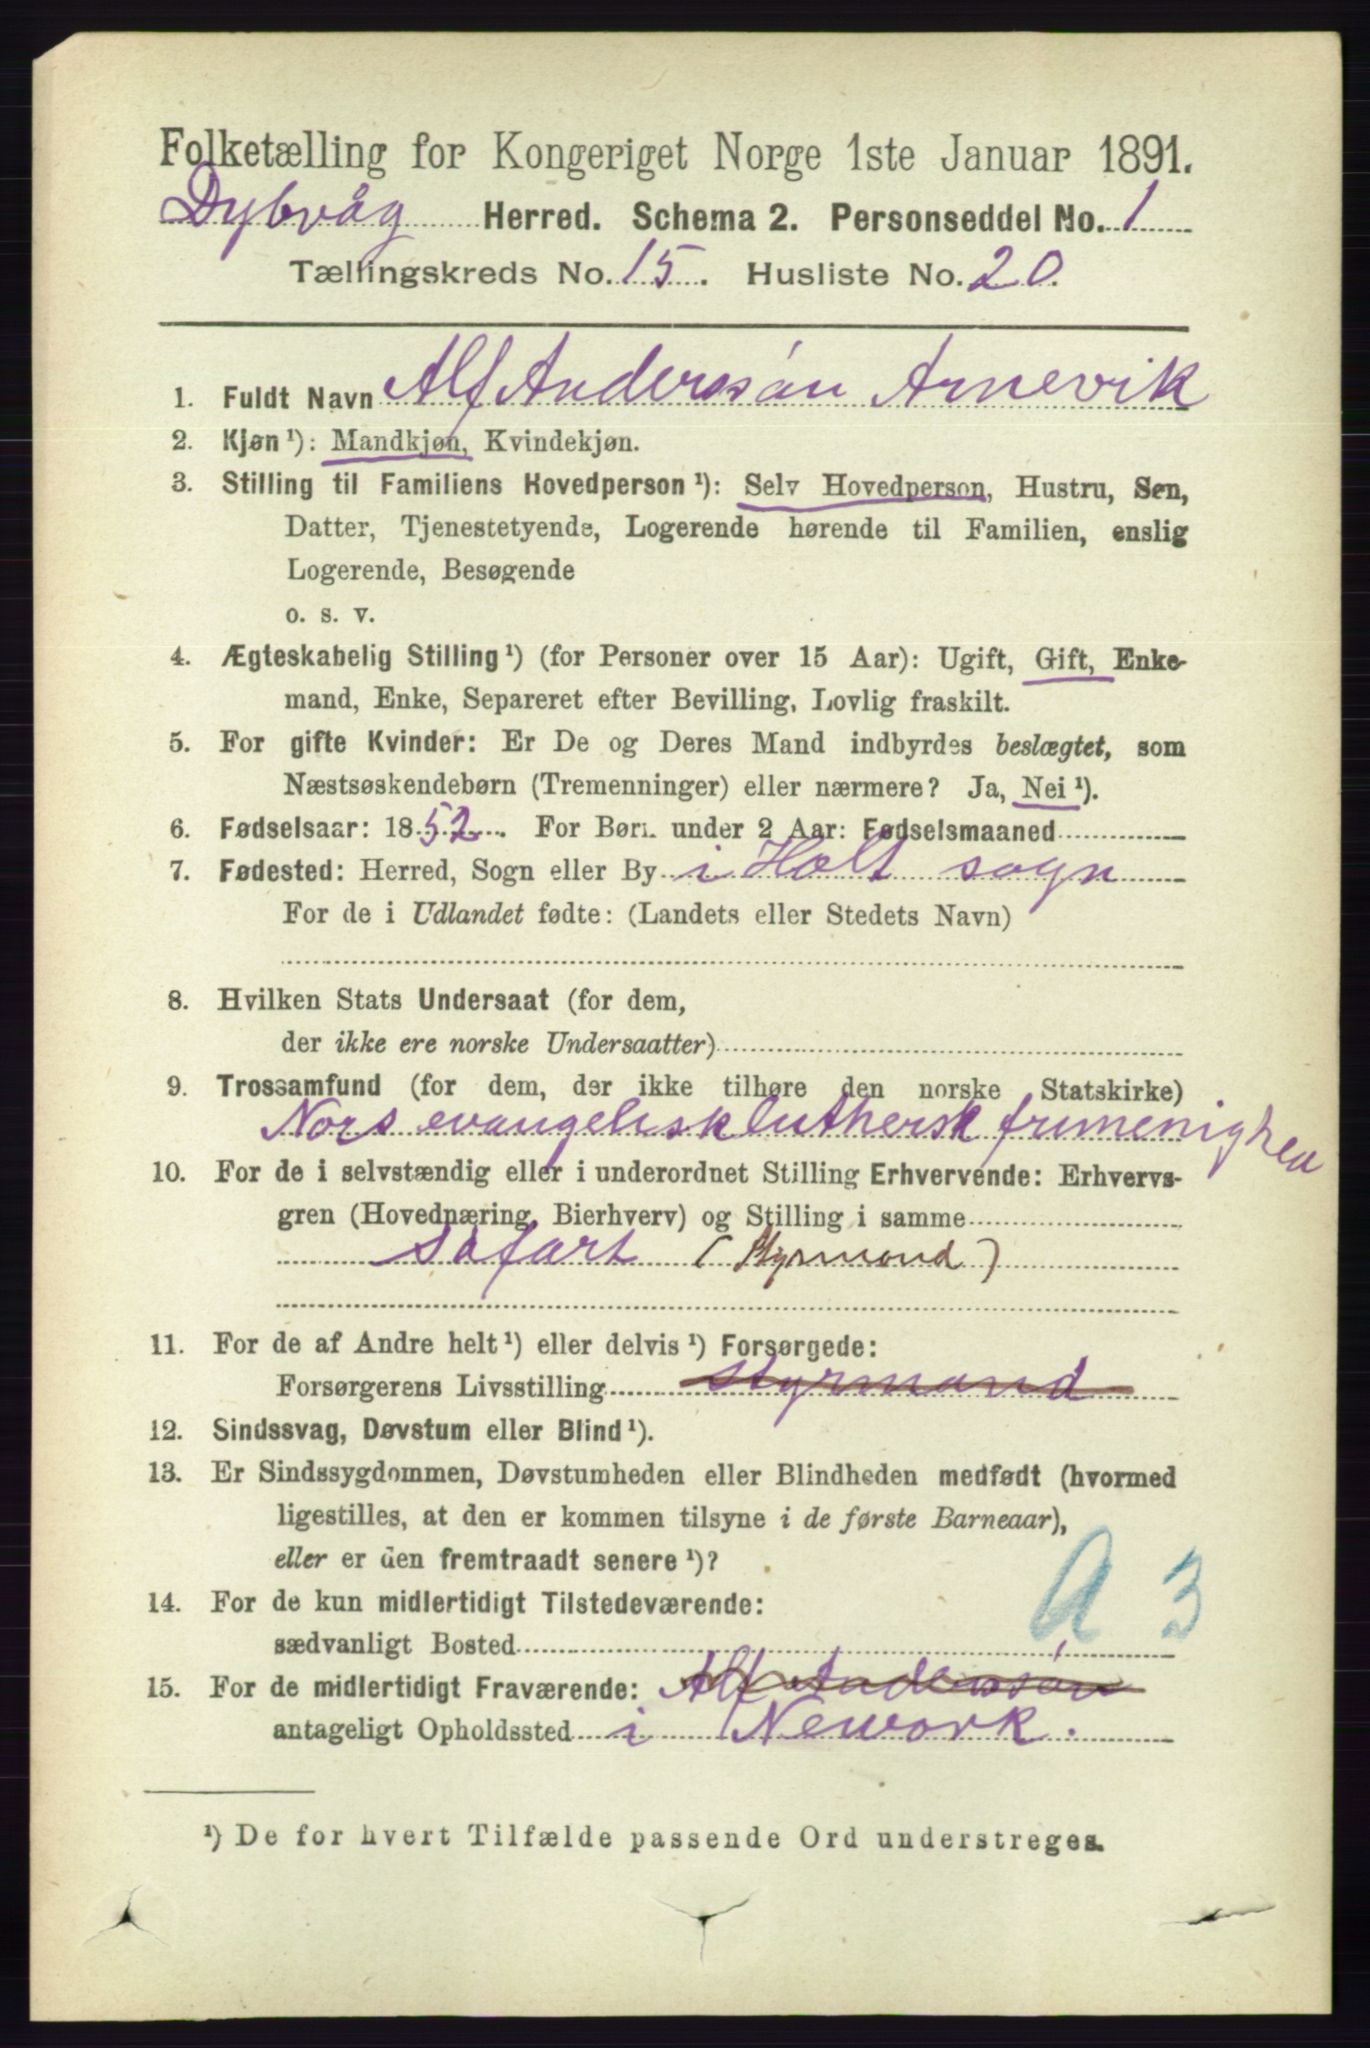 Folketælling for Kongeriget Norge 1ste Januar 1891.
Dybvåg Herred. Schema 2. Personseddel No. 1
Tællingskreds No. 15. Husliste No. 20.
1. Fuldt Navn Alf Anderssön Arnevik
2. Kjøn ¹): Mandkjøn, Kvindekjøn.
3. Stilling til Familiens Hovedperson ¹): Selv Hovedperson, Hustru, Søn,
Datter, Tjenestetyende, Logerende hørende til Familien, enslig
Logerende, Besøgende
o. s. v.
4. Ægteskabelig Stilling ¹) (for Personer over 15 Aar): Ugift, Gift, Enke-
mand, Enke, Separeret efter Bevilling, Lovlig fraskilt.
5. For gifte Kvinder: Er De og Deres Mand indbyrdes beslægtet, som
Næstsøskendebørn (Tremenninger) eller nærmere? Ja, Nei ¹).
6. Fødselsaar: 1852. For Børn under 2 Aar: Fødselsmaaned
7. Fødested: Herred, Sogn eller By i Holt sogn
For de i Udlandet fødte: (Landets eller Stedets Navn)
8. Hvilken Stats Undersaat (for dem,
der ikke ere norske Undersaatter)
9. Trossamfund (for dem, der ikke tilhøre den norske Statskirke)
Nors evangelisk luthersk frimenighed
10. For de i selvstændig eller i underordnet Stilling Erhvervende: Erhvervs-
gren (Hovednæring, Bierhverv) og Stilling i samme
Söfart (Styrmand)
11. For de af Andre helt ¹) eller delvis ¹) Forsørgede:
Forsørgerens Livsstilling styrmand
12. Sindssvag, Døvstum eller Blind ¹).
13. Er Sindssygdommen, Døvstumheden eller Blindheden medfødt (hvormed
ligestilles, at den er kommen tilsyne i de første Barneaar),
eller er den fremtraadt senere ¹)?
14. For de kun midlertidigt Tilstedeværende:
sædvanligt Bosted
A 3
15. For de midlertidigt Fraværende: Alf Anderssön
antageligt Opholdssted i Nework.
¹) De for hvert Tilfælde passende Ord understreges.